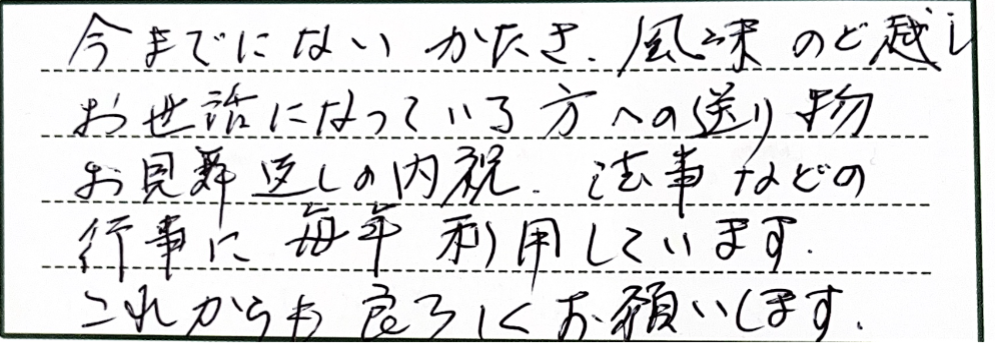 今までにないかたさ、風味のど越し
お世話になっている方への送り物
お見舞返しの内祝、法事などの
行事に毎年利用しています。
これからも良ろしくお願いします。